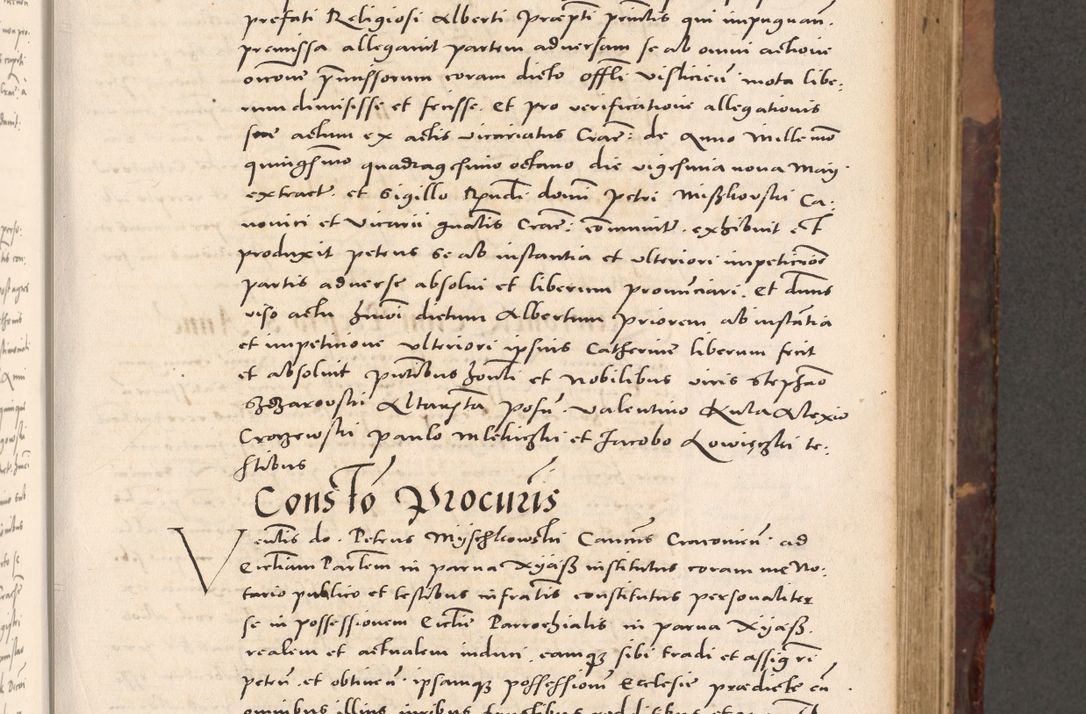 prefati Religiosi Alberti Præpti prnctis qui impugnan.
premissa allegavit partem adversam se ab omni actione
oncone pmissorum coram dicto offli visliciem mota libe,
rum dimisisse et fecisse. Et pro verificatione allegationis
sue actum ex actis vicariatus Crac: de Anno Millemo
quingsmo quadragesimo octavo die vigesima nona May
extract et sigillo Rpndi domi petri Mißkovski Ca,
nonici et vicarii gnalis Crac: commnit. exhibuit et
produxit petens se ab instantia et ulteriori impeticioe
partis adverse absolvi et liberum pronunciari. Et dnns
viso actu hmoi dictum Albertum priorem ab instantia
et impetitione ulteriori ipsius Catherine liberum fecit
et absolvit pntibus honli et Nobilibus viris Stephao
Altarista posn. Valentino Kula Alexio
Croczewski paulo et Jacobo te,
stibus
Constō Procuris
Venlis do. Petrus Myschkowski Cancus Cracovien: ad
Ecclliam Parlem in parva Xyäß institutus coram me No,
tario publico et testibus infratis constitutus personaliter
se in possessionem Ecclie Parrochialis in parva Xyäß.
realem et actualem induci, eamq; sibi tradi et assigri
petyt. et obtinen. ipsamq; possessionem Ecclesie prædicte cu
omnibus illius iuribus